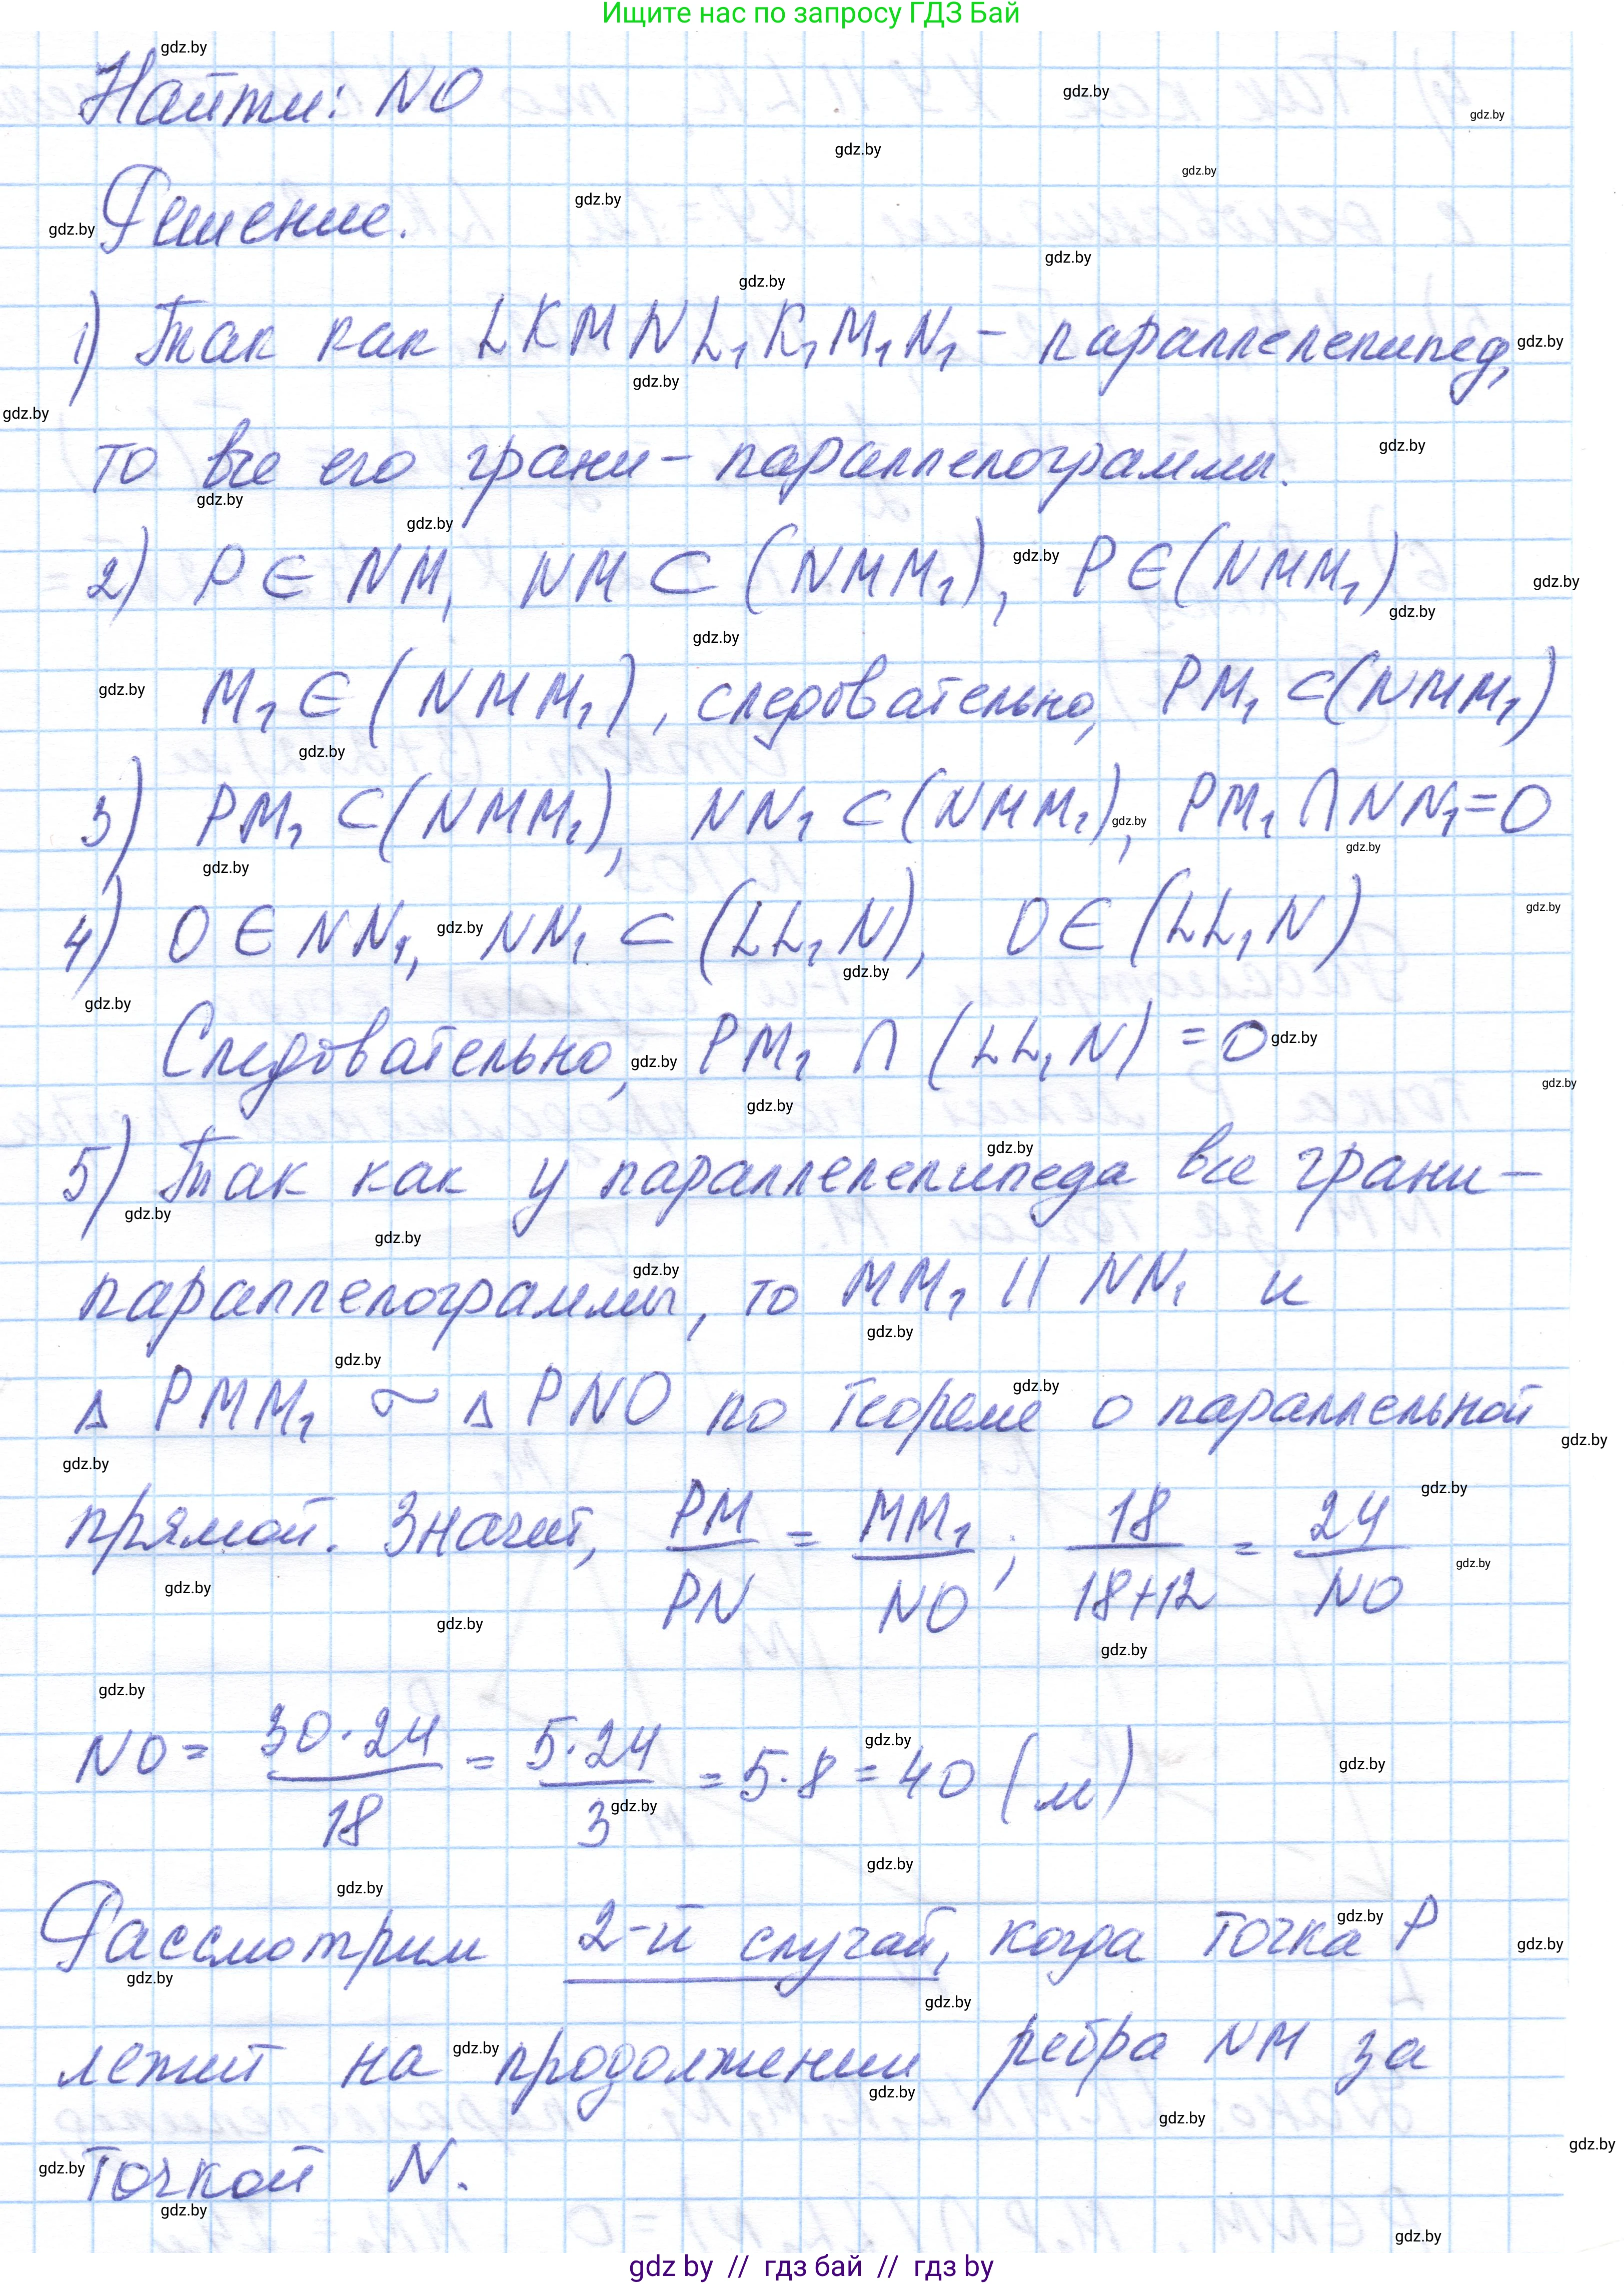 Ищите нас по запросу ГДЗ Бай
Найти: NO
Решение.
1) Так как LKMNL₁K₁M₁N₁ – параллелепипед,
то все его грани – параллелограммы.
2) P ∈ NM, NM ⊂ (NMM₁), P ∈ (NMM₁)
M₁ ∈ (NMM₁), следовательно, PM₁ ⊂ (NMM₁)
3) PM₁ ⊂ (NMM₁), NN₁ ⊂ (NMM₁), PM₁ ∩ NN₁ = O
4) O ∈ NN₁, NN₁ ⊂ (LL₁N), O ∈ (LL₁N)
Следовательно, PM₁ ∩ (LL₁N) = O
5) Так как у параллелепипеда все грани –
параллелограммы, то MM₁ || NN₁ и
Δ PMM₁ ~ Δ PNO по теореме о параллельной
прямой. Значит, PM/PN = MM₁/NO; 18/18+12 = 24/NO
NO = 30·24/18 = 5·24/3 = 5·8 = 40 (м)
Рассмотрим 2-й случай, когда точка P
лежит на продолжении ребра NM за
точкой N.
gdz by // гдз бай // гдз by